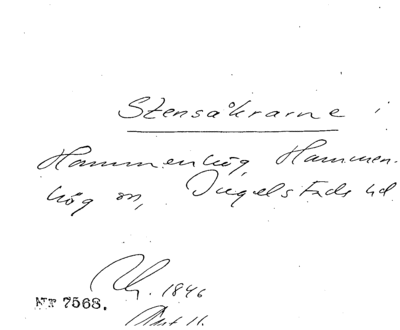 Stensåkrarne i
Hammenhög, Hammen-
hög sn, Ingelstads hd
1846
Nr 7568.